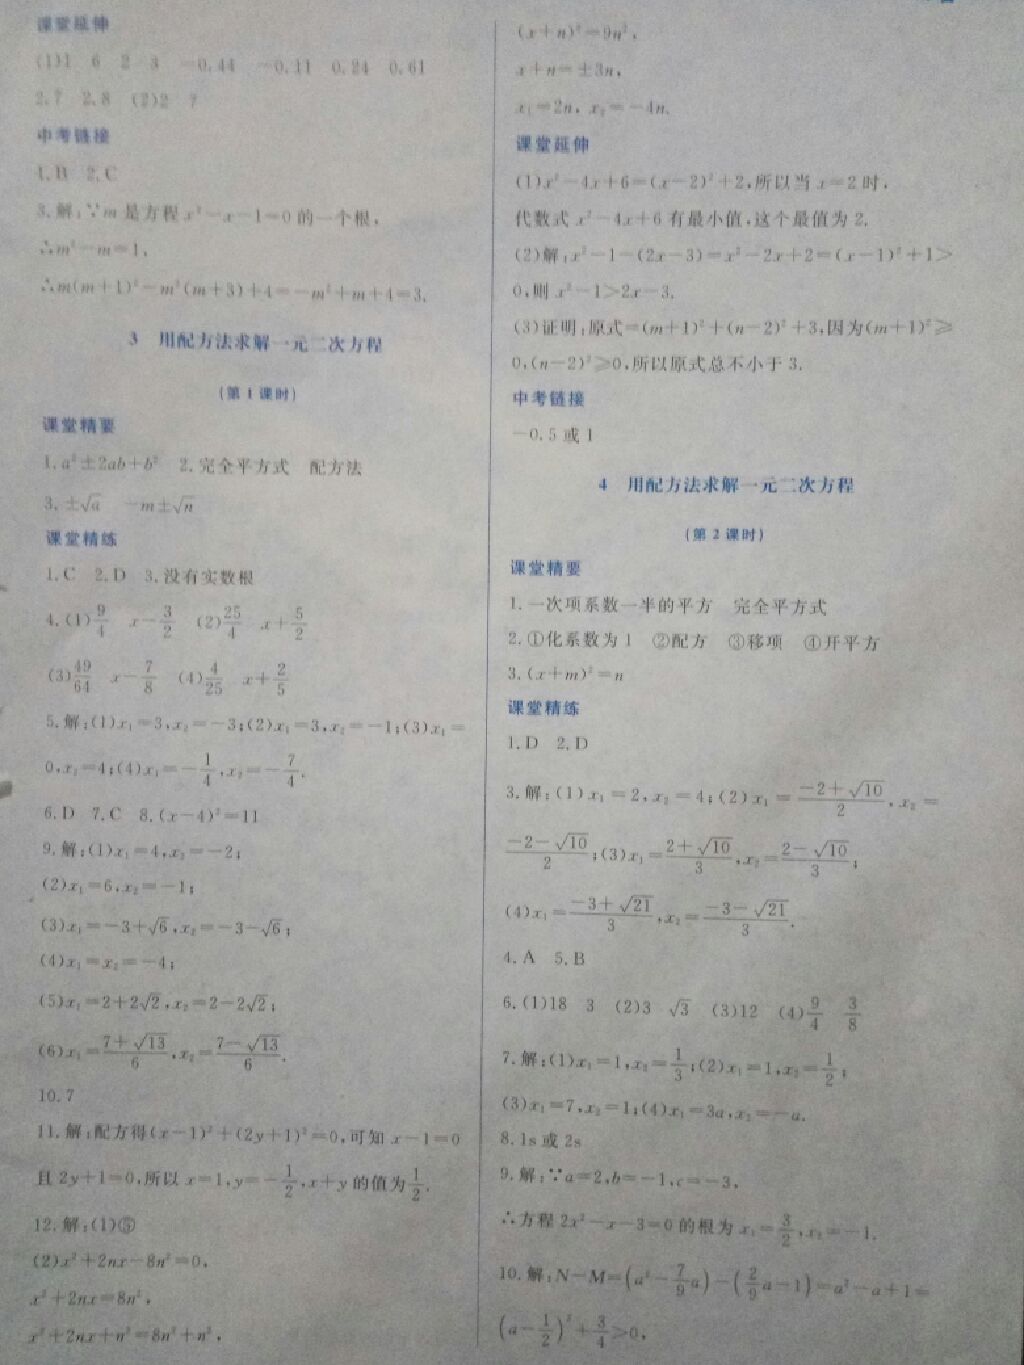 课堂延伸
(1)1 6 2 3 -0.44 -0.11 0.24 0.61
2.7 2.8 (2)2 7
中考链接
1.B 2.C
3.解:∵m是方程x²-x-1=0的一个根,
∴m²-m=1,
∴m(m+1)²-m²(m+3)+4=-m²+m+4=3.
3 用配方法求解一元二次方程
(第1课时)
课堂精要
1.a²±2ab+b² 2.完全平方式 配方法
3.±√a -m±√n
课堂精练
1.C 2.D 3.没有实数根
4.(1)9/4 x-3/2 (2)25/4 x+5/2
(3)49/64 x-7/8 (4)4/25 x+2/5
5.解:(1)x₁=3,x₂=-3;(2)x₁=3,x₂=-1;(3)x₁=
0,x₂=4;(4)x₁=-1/4,x₂=-7/4.
6.D 7.C 8.(x-4)²=11
9.解:(1)x₁=4,x₂=-2;
(2)x₁=6,x₂=-1;
(3)x₁=-3+√6,x₂=-3-√6;
(4)x₁=x₂=-4;
(5)x₁=2+2√2,x₂=2-2√2;
(6)x₁=(7+√13)/6,x₂=(7-√13)/6.
10.7
11.解:配方得(x-1)²+(2y+1)²=0,可知x-1=0
且2y+1=0,所以x=1,y=-1/2,x+y的值为1/2.
12.解:(1)⑤
(2)x²+2nx-8n²=0,
x²+2nx=8n²,
x²+2nx+n²=8n²+n²,
(x+n)²=9n²,
x+n=±3n,
x₁=2n,x₂=-4n.
课堂延伸
(1)x²-4x+6=(x-2)²+2,所以当x=2时,
代数式x²-4x+6有最小值,这个最值为2.
(2)解:x²-1-(2x-3)=x²-2x+2=(x-1)²+1>
0,则x²-1>2x-3.
(3)证明:原式=(m+1)²+(n-2)²+3,因为(m+1)²≥
0,(n-2)²≥0,所以原式总不小于3.
中考链接
-0.5或1
4 用配方法求解一元二次方程
(第2课时)
课堂精要
1.一次项系数一半的平方 完全平方式
2.①化系数为1 ②配方 ③移项 ④开平方
3.(x+m)²=n
课堂精练
1.D 2.D
3.解:(1)x₁=2,x₂=4;(2)x₁=(-2+√10)/2,x₂=
(-2-√10)/2;(3)x₁=(2+√10)/3,x₂=(2-√10)/3;
(4)x₁=(-3+√21)/3,x₂=(-3-√21)/3.
4.A 5.B
6.(1)18 3 (2)3 √3 (3)12 (4)9/4 3/8
7.解:(1)x₁=1,x₂=1/3;(2)x₁=1,x₂=1/2;
(3)x₁=7,x₂=1;(4)x₁=3a,x₂=-a.
8.1s或2s
9.解:∵a=2,b=-1,c=-3,
∴方程2x²-x-3=0的根为x₁=3/2,x₂=-1.
10.解:N-M=(a²-7/9a)-(2/9a-1)=a²-a+1=
(a-1/2)²+3/4>0,